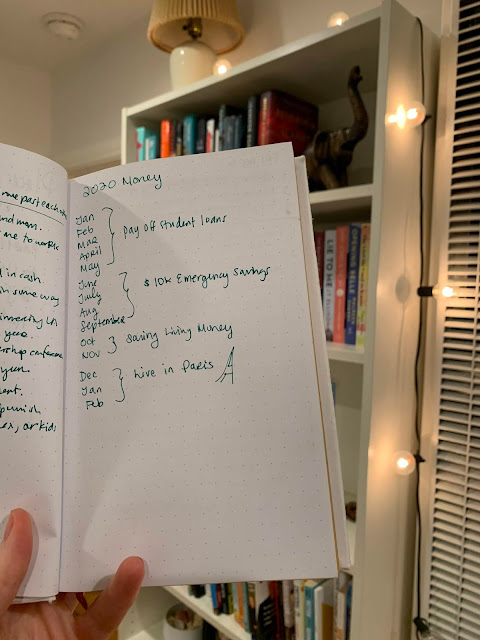 me past each
and mom.
me to works
d in cash
in some way
investing LA
year.
ship conference
year.
ent.
panish
ex, or kids
2020 Money
Jan
Feb
Mar
April
May
Pay off student loans
June
July
Aug
September
$10k Emergency Savings
Oct
Nov
Saving Living Money
Dec
Jan
Feb
Live in Paris
LIE TO ME
OPENING BELLE